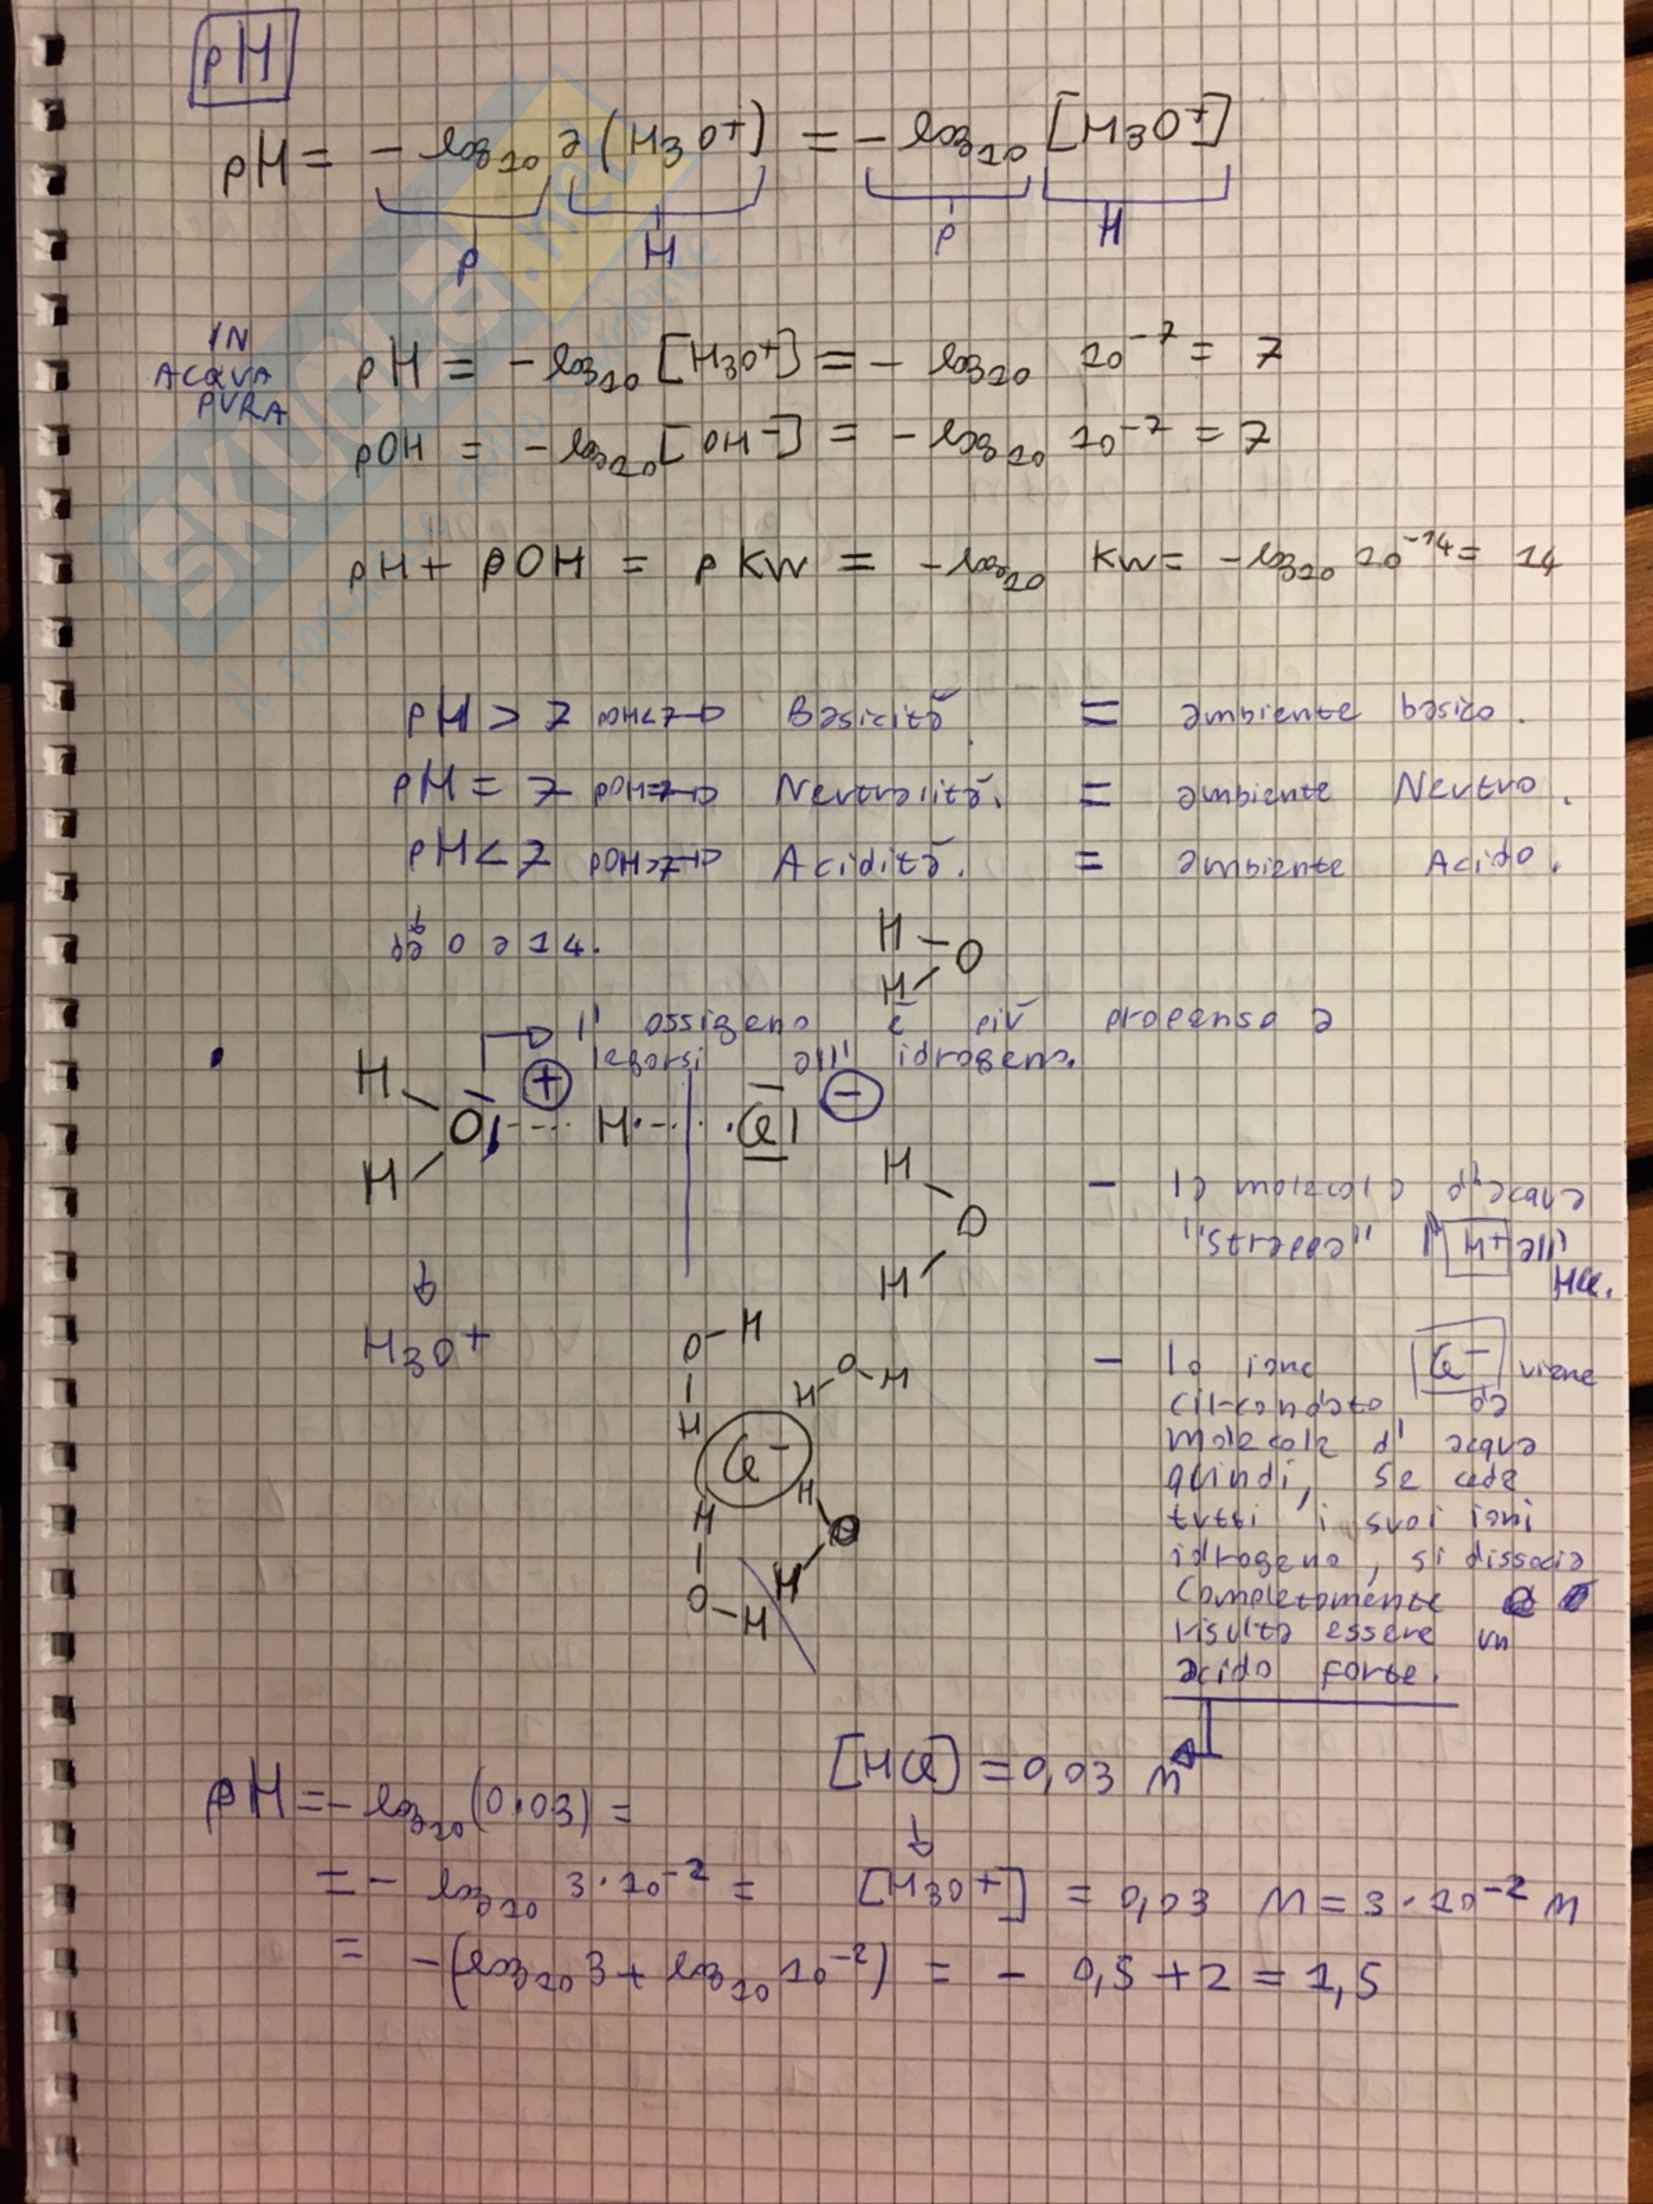 pH
pH = - log10 a (H3O+) = - log10 [H3O+]
p H p H
IN ACQUA PURA
pH = - log10 [H3O+] = - log10 10^-7 = 7
pOH = - log10 [OH-] = - log10 10^-7 = 7
pH + pOH = pKw = - log10 Kw = - log10 10^-14 = 14
pH > 7 pOH<7 → Basicità = ambiente basico.
pH = 7 pOH=7 → Neutralità. = ambiente Neutro.
pH < 7 pOH>7 → Acidità. = ambiente Acido.
da 0 a 14.
H
O
H
l'ossigeno è più propenso a
legarsi all'idrogeno.
H + -
O ---- H ---- Cl
H
H
O
H
- la molecola d'acqua
"strappa" H+ all'
HCl.
↓
H3O+
O-H
H
O
H H
Cl-
H
H
O
H
O-H
- lo ione Cl- viene
circondato da
molecole d'acqua
quindi, se cede
tutti i suoi ioni
idrogeno, si dissocia
completamente
risulta essere un
acido forte.
[HCl] = 0,03 M
pH = - log10 (0.03) =
↓
= - log10 3·10^-2 =
[H3O+] = 0,03 M = 3·10^-2 M
= - (log10 3 + log10 10^-2) = - 0,5 + 2 = 1,5
SKUOLA.net